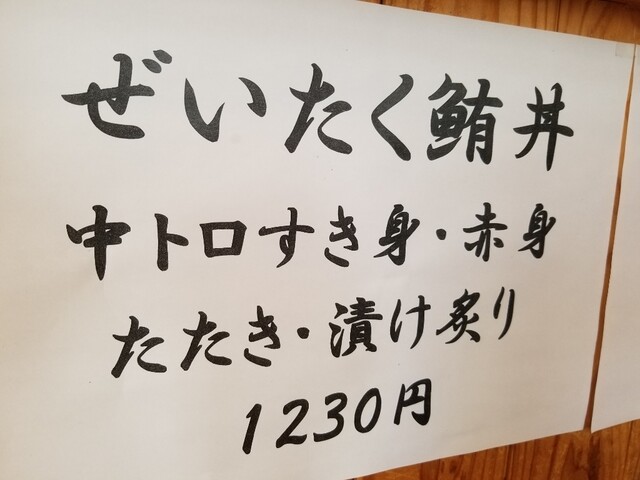 ぜいたく鮪丼
中トロすき身・赤身
たたき・漬け炙り
1230円